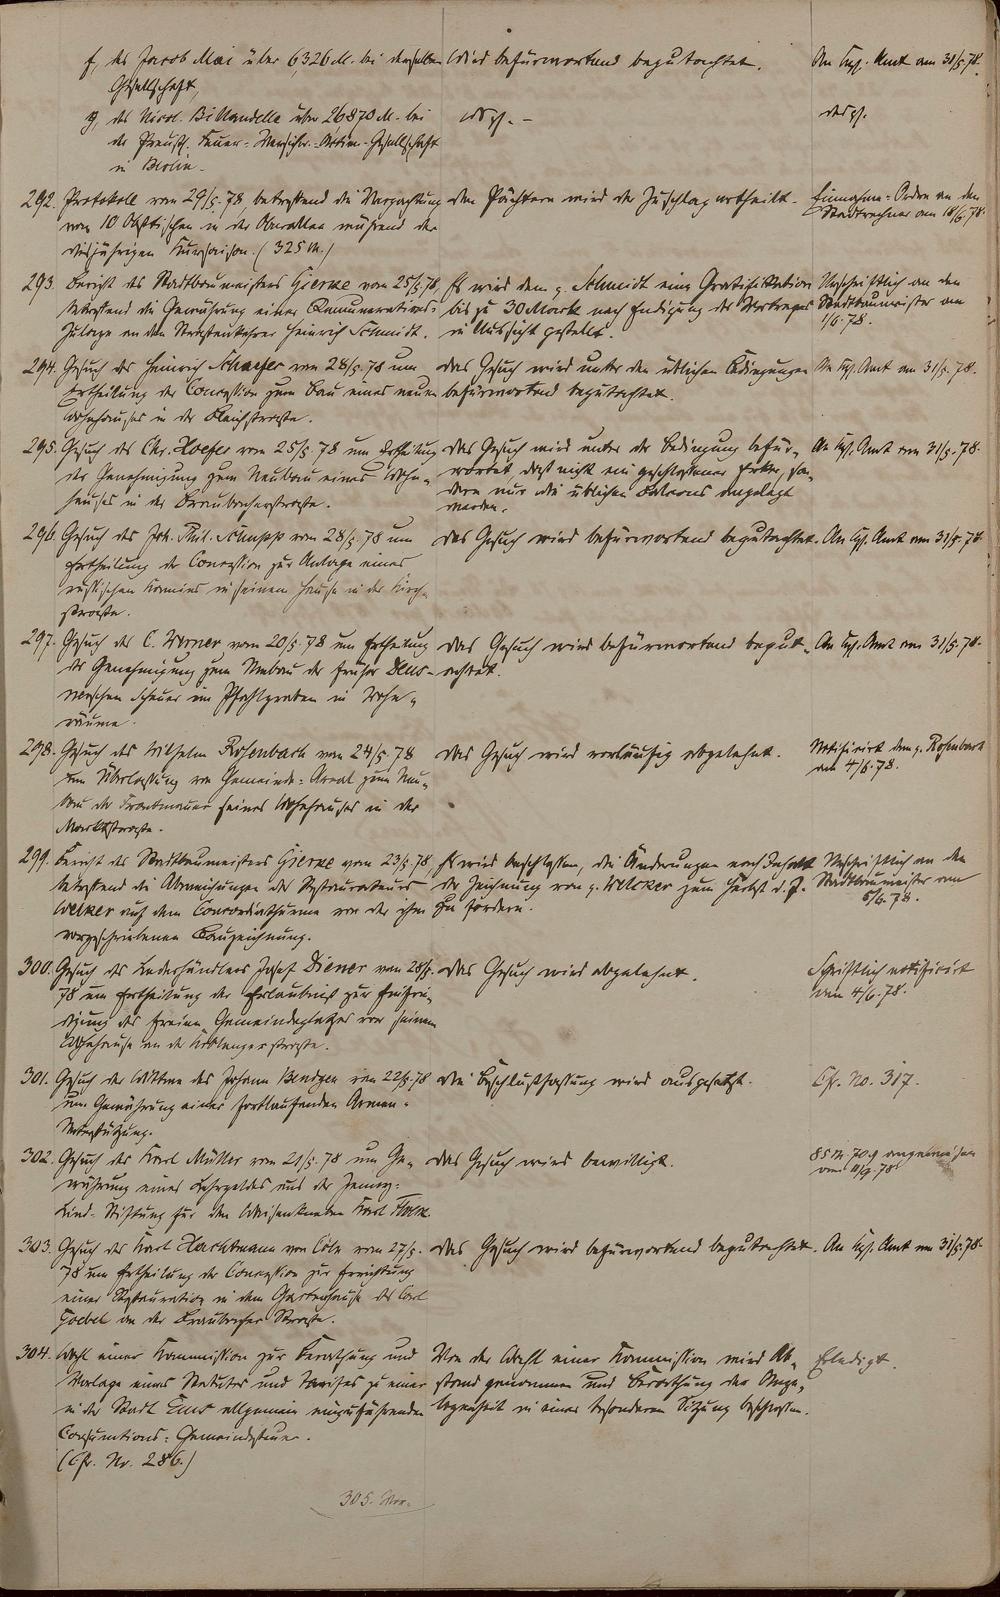 f, des Jacob Mai über 6326 M. bei derselben
Gesellschaft,
Wird befürwortend begutachtet.
An Kgl. Amt am 31/5.78.
g, des Nicol. Billaudelle über 26870 M. bei
der Preuß. Feuer-Versichr.-Aktien-Gesellschaft
in Berlin.
desgl. –
desgl.
292. Protokoll vom 29/5.78 betreffend die Verpachtung
von 10 Obsttischen in der Oberallee während der
diesjährigen Kursaison. (325 M.)
Den Pächtern wird der Zuschlag ertheilt.
Einnahme-Ordre an den
Stadtrechner am 18/6.78.
293. Bericht des Stadtbaumeisters Gierne vom 25/5.78,
betreffend die Gewährung einer Remunerations-
Zulage an den Straßenkehrer Heinrich Schmidt.
Es wird dem p. Schmidt eine Gratifikation
bis zu 30 Mark nach Endigung des Vertrages
in Aussicht gestellt.
Urschriftlich an den
Stadtbaumeister am
1/6.78.
294. Gesuch des Heinrich Schaefer vom 28/5.78 um
Ertheilung der Concession zum Bau eines neuen
Wohnhauses in der Bleichstraße.
Das Gesuch wird unter den üblichen Bedingungen
befürwortend begutachtet.
An Kgl. Amt am 31/5.78.
295. Gesuch des Chr. Hoefer vom 25/5.78 um Ertheilung
der Genehmigung zum Neubau eines Wohn-
hauses in der Braubacherstraße.
Das Gesuch wird unter der Bedingung befür-
wortet, daß nicht ein geschlossener Erker, son-
dern nur die üblichen Balcons angelegt
werden.
An Kgl. Amt am 31/5.78.
296. Gesuch des Joh. Phil. Schupp vom 28/5.78 um
Ertheilung der Concession zur Anlage eines
russischen Kamins in seinem Hause in der Kirch-
straße.
Das Gesuch wird befürwortend begutachtet.
An Kgl. Amt am 31/5.78
297. Gesuch des C. Werner vom 20/5.78 um Ertheilung
der Genehmigung zum Umbau der früher
Scheuer im Pfahlgraben in Wohn-
räume.
Das Gesuch wird befürwortend begut-
achtet.
An Kgl. Amt am 31/5.78.
298. Gesuch des Wilhelm Rosenbach vom 24/5.78
um Überlassung von Gemeinde-Areal zum Neu-
bau der Frontmauer seines Wohnhauses in der
Marktstraße.
Das Gesuch wird vorläufig abgelehnt.
Notificirt dem p. Rosenbach
am 4/6.78.
299. Bericht des Stadtbaumeisters Gierne vom 23/5.78,
betreffend die Abweichungen des Restaurateurs
Welker auf dem Concordiathurme von der ihm
vorgeschriebenen Bauzeichnung.
Es wird beschlossen, die Änderungen nach Inhalt
der Zeichnung von p. Welcker zum Herbst d. J.
zu fordern.
Urschriftlich an den
Stadtbaumeister am
5/6.78.
300. Gesuch des Lederhändlers Josef Diener vom 28/5.
78 um Ertheilung der Erlaubniß zur Einfrie-
digung des freien Gemeindeplatzes vor seinem
Wohnhause an der Koblenzerstraße.
Das Gesuch wird abgelehnt.
Schriftlich notificirt
am 4/6.78.
301. Gesuch der Wittwe des Johann vom 22/5.78
um Gewährung einer fortlaufenden Armen-
Unterstützung.
Die Beschlußfassung wird ausgesetzt.
Cfr. No. 317.
302. Gesuch des Karl Müller vom 21/5.78 um Ge-
währung eines Lehrgeldes aus der
Kind-Stiftung für den Waisenknaben Karl
Das Gesuch wird bewilligt.
85 M. 70 angewiesen
303. Gesuch des Karl Hachtmann von Cöln vom 27/5.
78 um Ertheilung der Concession zur Errichtung
einer Restauration in dem Gartenhause des Carl
Goebel an der Braubacher Straße.
Das Gesuch wird befürwortend begutachtet.
An Kgl. Amt am 31/5.78.
304. Wahl einer Kommission zur Berathung und
Vorlage eines Statutes und Tarifes zu einer
in der Stadt Ems allgemein einzuführenden
Consumtions-Gemeindesteuer.
(Cfr. Nr. 286.)
Von der Wahl einer Kommission wird Ab-
stand genommen und Berathung der Ange-
legenheit in einer besonderen Sitzung beschlossen.
Erledigt.
305.